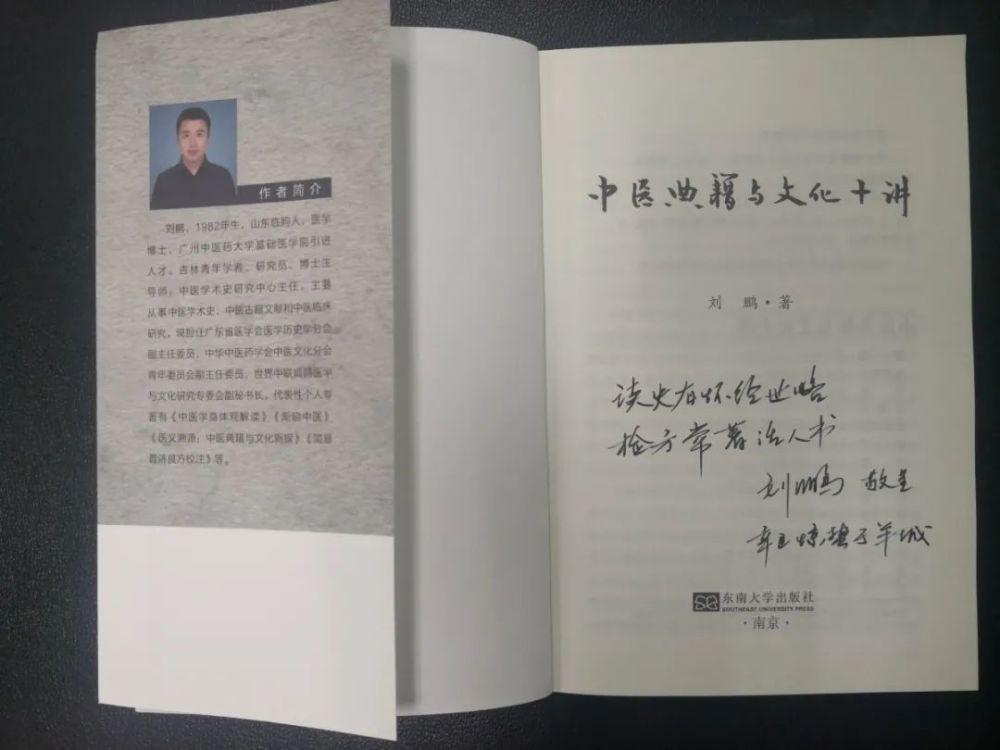 作者简介
刘鹏，1982年生，山东临朐人，医学
博士，广州中医药大学基础医学院引进
人才、杏林青年学者，研究员、博士生
导师，中医学术史研究中心主任，主要
从事中医学术史、中医古籍文献和中医临床
研究。现担任广东省医学会医学历史学分会
副主任委员，中华中医药学会中医文化分会
青年委员会副主任委员，世界中联 医学
与文化研究专委会副秘书长。代表性个人专
著有《中医学身体观解读》《 中医》
《医义溯源：中医典籍与文化新探》《简易
普济良方校注》等。
中医典籍与文化十讲
刘 鹏·著
读史有怀经世略
检方常著活人书
刘鹏 敬呈
辛丑惊蛰于羊城
东南大学出版社
SOUTHEAST UNIVERSITY PRESS
·南京·